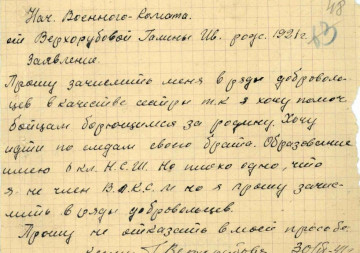 48
Нач. Военного-Комата.
63
от Верхорубовой Галины Ив. рожд. 1921г.
Заявление.
Прошу зачислить меня в ряды доброволь-
цев в качестве т.к я хочу помоч
бойцам борющимся за родину. Хочу
идти по следам своего брата. Образование
имею кл. Н.С.Ш. Но плохо одно, что
я не член В.Л.К.С.М но я прошу зачис-
лить в ряды добровольцев.
Прошу не отказать в моей просьбе.